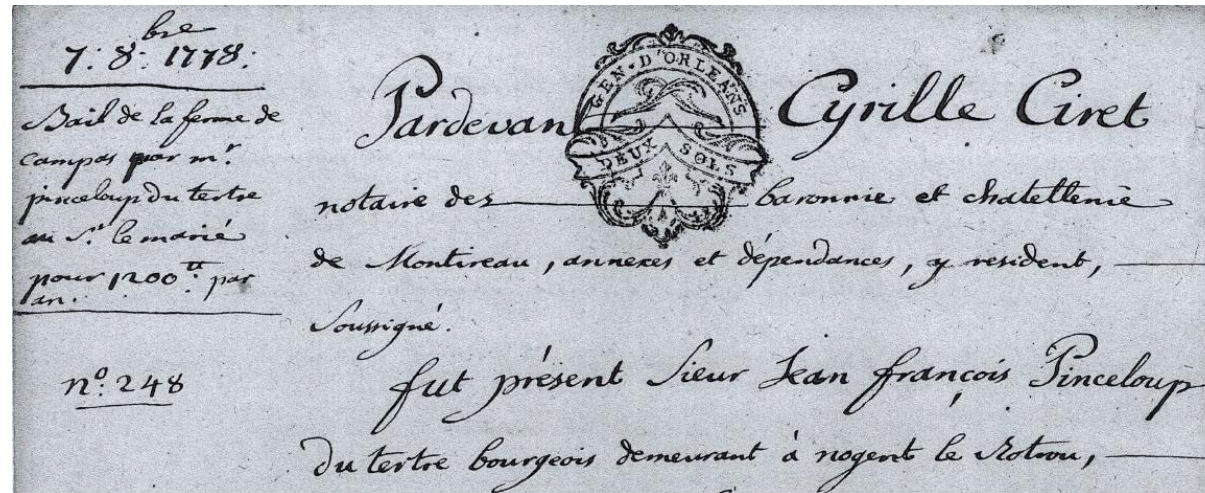 7. 8.bre 1778.
Bail de la ferme de
campas par mr.
pinceloup du tertre
au Sr. le marié
pour 1200tt. par
an.
n.o 248
GEN · D'ORLEANS
DEUX SOLS
Pardevant Cyrille Ciret
notaire des baronnie et chatellenie
de Montireau, annexes et dépendances, y resident,
Soussigné.
fut présent Sieur Jean françois Pinceloup
Du tertre bourgeois demeurant à nogent le Rotrou,